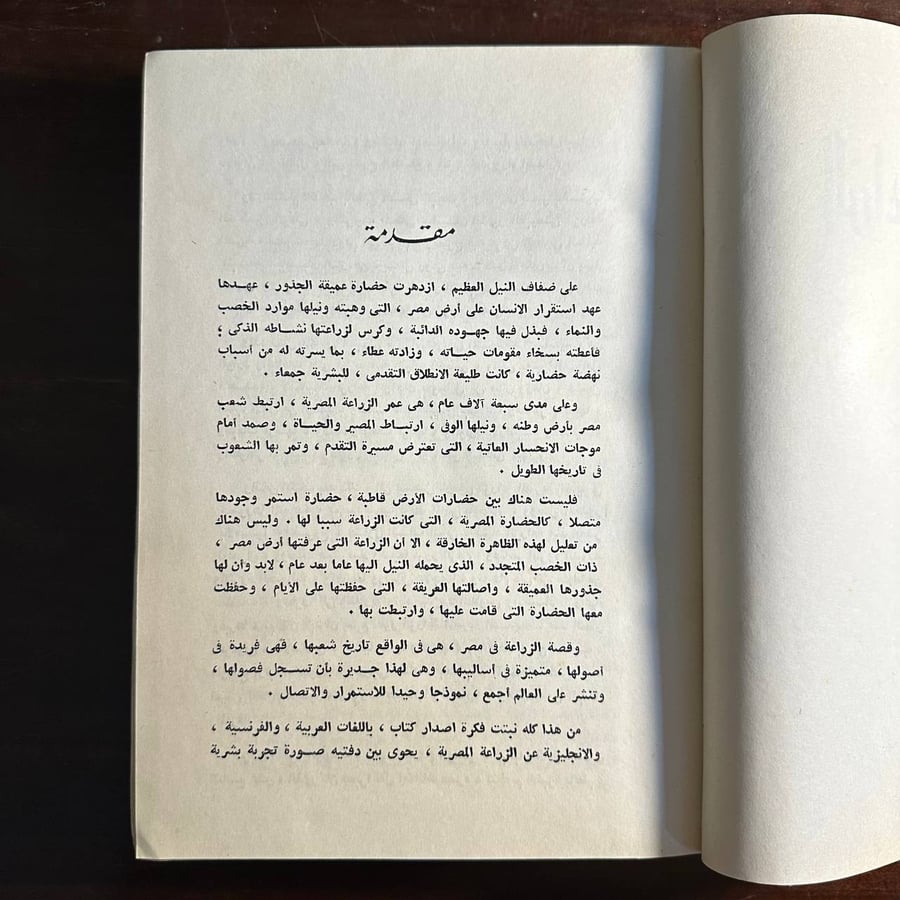 مقدمة
على ضفاف النيل العظيم ، ازدهرت حضارة عميقة الجذور ، عهدها
عهد استقرار الانسان على أرض مصر ، التى وهبته ونيلها موارد الخصب
والنماء ، فبذل فيها جهوده الدائبة ، وكرس لزراعتها نشاطه الذكى ؛
فأعطته بسخاء مقومات حياته ، وزادته عطاء ، بما يسرته له من أسباب
نهضة حضارية ، كانت طليعة الانطلاق التقدمى ، للبشرية جمعاء .
وعلى مدى سبعة آلاف عام ، هى عمر الزراعة المصرية ، ارتبط شعب
مصر بأرض وطنه ، ونيلها الوفى ، ارتباط المصير والحياة ، وصمد أمام
موجات الانحسار العاتية ، التى تعترض مسيرة التقدم ، وتمر بها الشعوب
فى تاريخها الطويل .
فليست هناك بين حضارات الأرض قاطبة ، حضارة استمر وجودها
متصلا ، كالحضارة المصرية ، التى كانت الزراعة سببا لها . وليس هناك
من تعليل لهذه الظاهرة الخارقة ، الا أن الزراعة التى عرفتها أرض مصر ،
ذات الخصب المتجدد ، الذى يحمله النيل اليها عاما بعد عام ، لابد وأن لها
جذورها العميقة ، واصالتها العريقة ، التى حفظتها على الأيام ، وحفظت
معها الحضارة التى قامت عليها ، وارتبطت بها .
وقصة الزراعة فى مصر ، هى فى الواقع تاريخ شعبها ، فهى فريدة فى
أصولها ، متميزة فى أساليبها ، وهى لهذا جديرة بأن تسجل فصولها ،
وتنشر على العالم اجمع ، نموذجا وحيدا للاستمرار والاتصال .
من هذا كله نبتت فكرة اصدار كتاب ، باللغات العربية ، والفرنسية ،
والانجليزية عن الزراعة المصرية ، يحوى بين دفتيه صورة تجربة بشرية